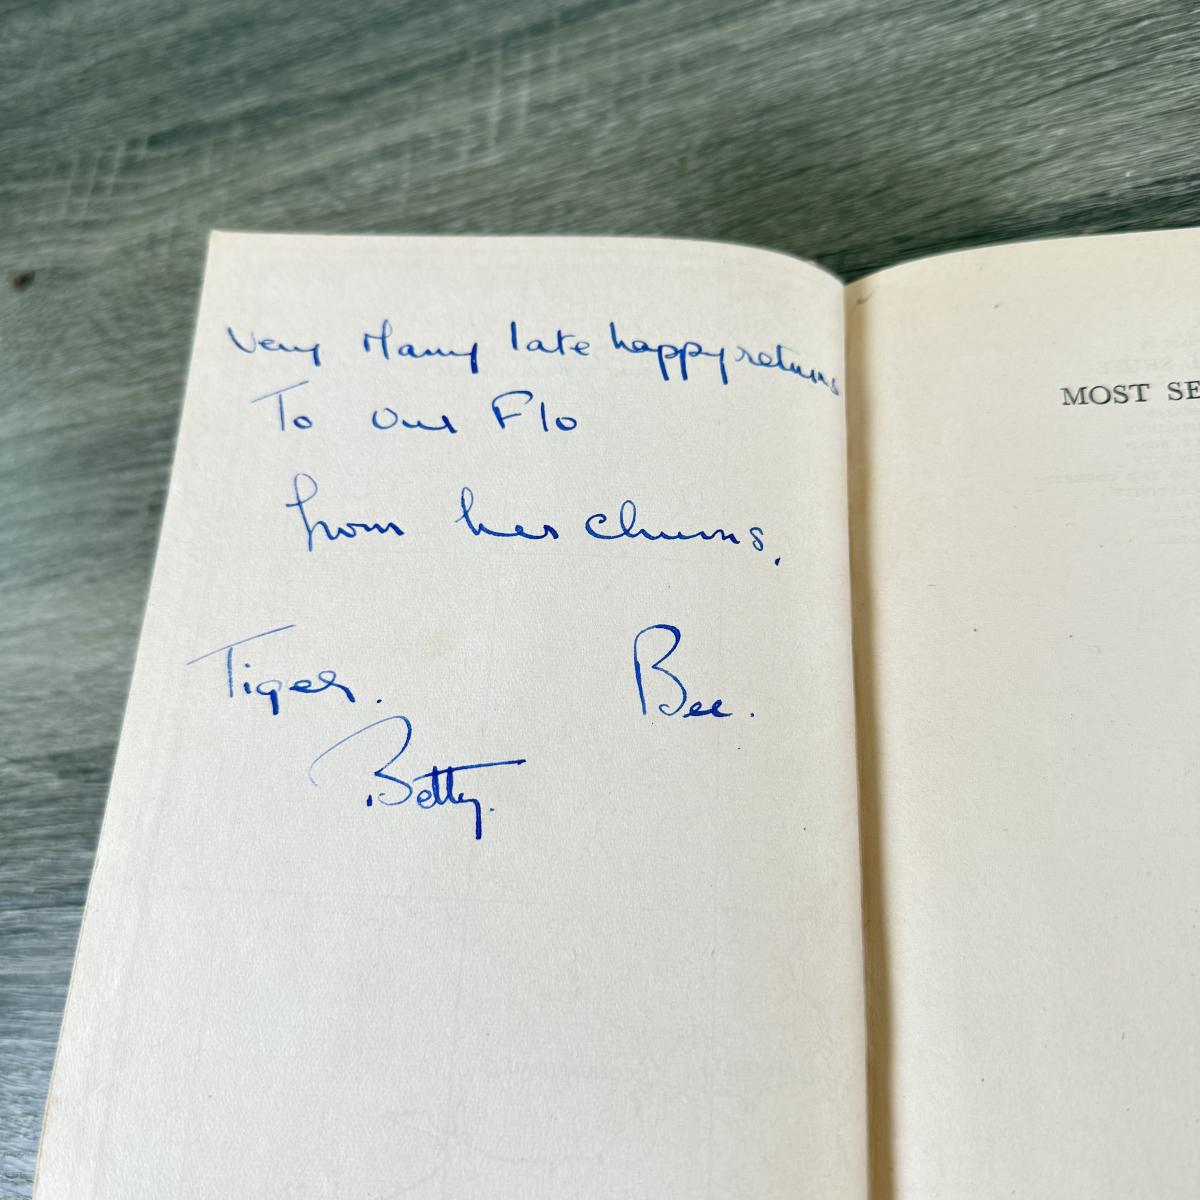 Very Many late happy returns
To our Flo
from her chums.
Tiger. Bee.
Betty.
MOST SE